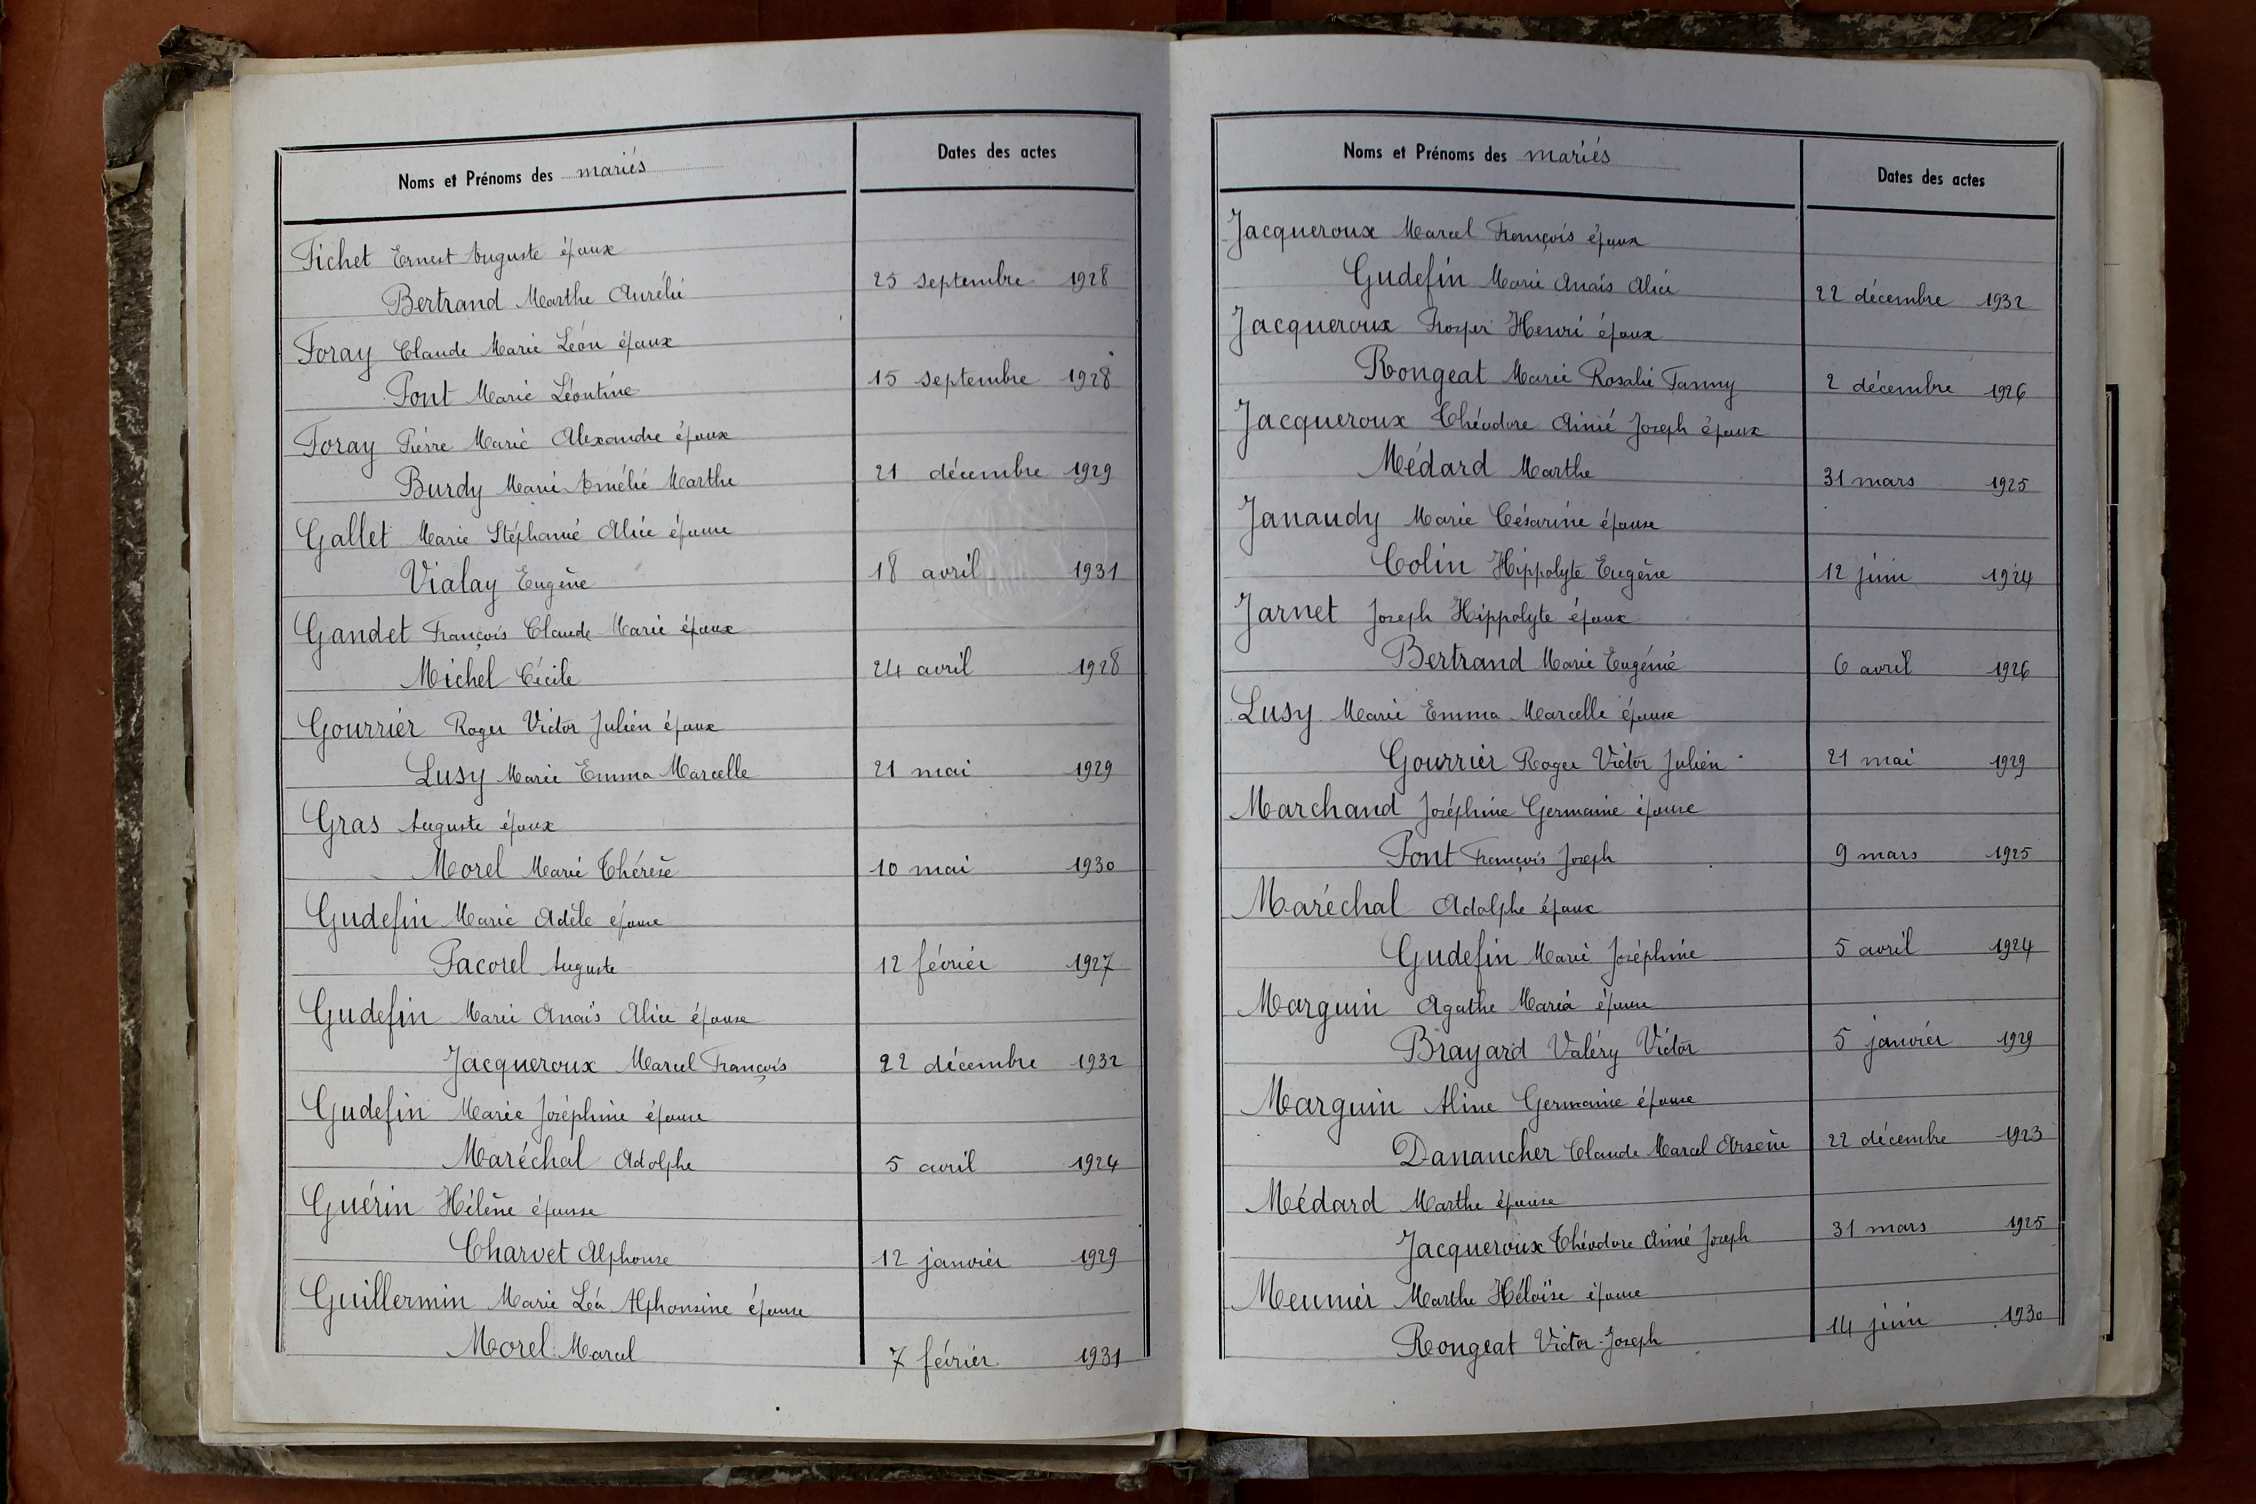 Noms et Prénoms des mariés
Dates des actes
Fichet Ernest Auguste époux
Bertrand Marthe Aurélie 25 septembre 1928
Foray Claude Marie Léon époux
Pont Marie Léontine 15 septembre 1928
Foray Pierre Marie Alexandre époux
Burdy Marie Amélie Marthe 21 décembre 1929
Gallet Marie Stéphanie Alice épouse
Vialay Eugène 18 avril 1931
Gandet François Claude Marie époux
Michel Cécile 24 avril 1928
Gourrier Roger Victor Julien époux
Lusy Marie Emma Marcelle 21 mai 1929
Gras Auguste époux
Morel Marie Thérèse 10 mai 1930
Gudefin Marie Adèle épouse
Pacorel Auguste 12 février 1927
Gudefin Marie Anaïs Alice épouse
Jacqueroux Marcel François 22 décembre 1932
Gudefin Marie Joséphine épouse
Maréchal Adolphe 5 avril 1924
Guérin Hélène épouse
Charvet Alphonse 12 janvier 1929
Guillermin Marie Léa Alphonsine épouse
Morel Marcel 7 février 1931
Noms et Prénoms des mariés
Dates des actes
Jacqueroux Marcel François époux
Gudefin Marie Anaïs Alice 22 décembre 1932
Jacqueroux Prosper Henri époux
Rongeat Marie Rosalie Fanny 2 décembre 1926
Jacqueroux Théodore Aimé Joseph époux
Médard Marthe 31 mars 1925
Janaudy Marie Césarine épouse
Colin Hippolyte Eugène 12 juin 1924
Jarnet Joseph Hippolyte époux
Bertrand Marie Eugénie 6 avril 1926
Lusy Marie Emma Marcelle épouse
Gourrier Roger Victor Julien 21 mai 1929
Marchand Joséphine Germaine épouse
Pont François Joseph 9 mars 1925
Maréchal Adolphe époux
Gudefin Marie Joséphine 5 avril 1924
Marguin Agathe Maria épouse
Brayard Valéry Victor 5 janvier 1929
Marguin Aline Germaine épouse
Danancher Claude Marcel Arsène 22 décembre 1923
Médard Marthe épouse
Jacqueroux Théodore Aimé Joseph 31 mars 1925
Meunier Marthe Héloïse épouse
Rongeat Victor Joseph 14 juin 1930